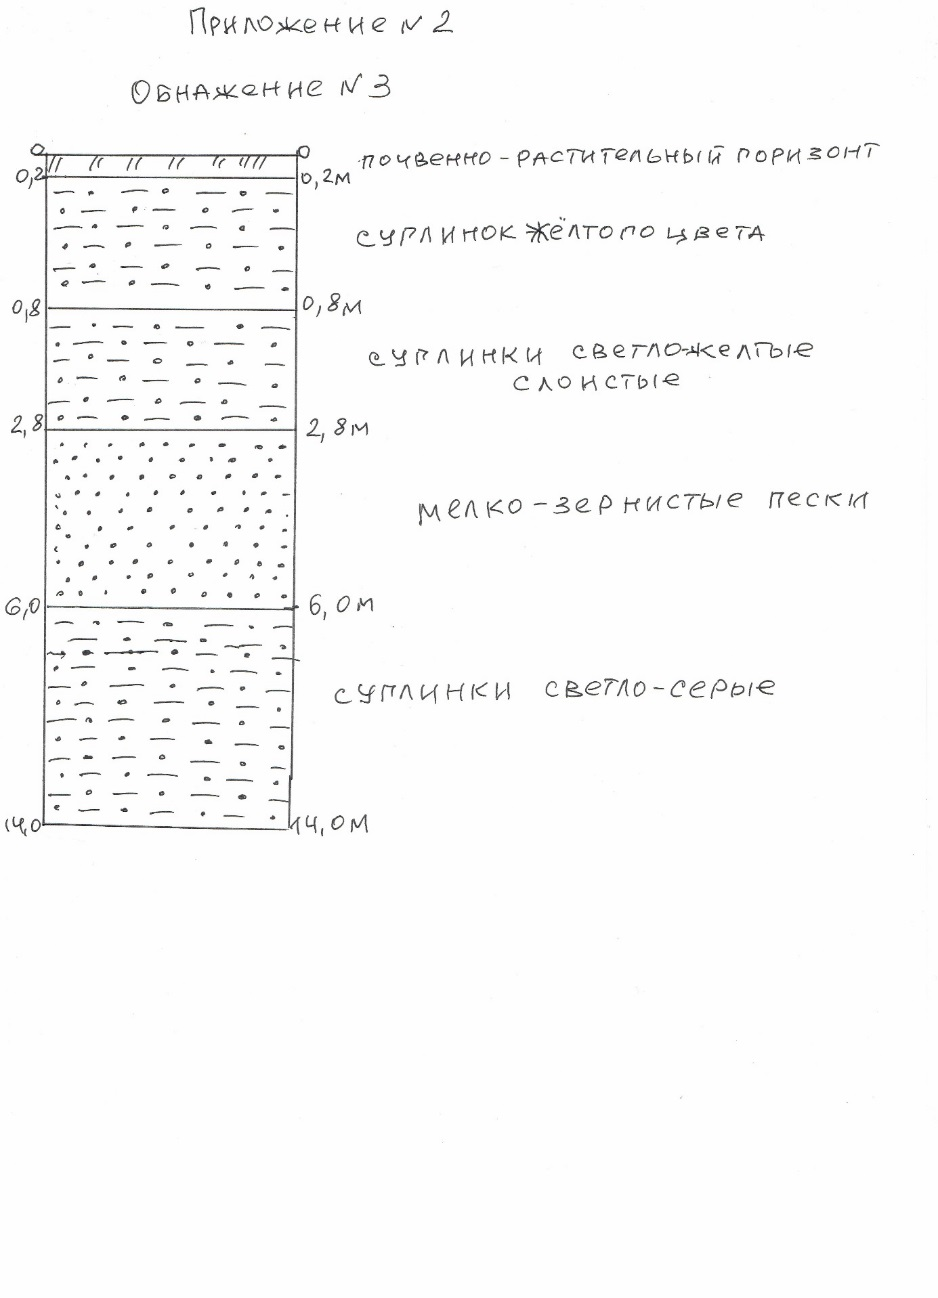 Приложение N 2
Обнажение N 3
0 0 почвенно-растительный горизонт
0,2 0,2м
суглинок жёлтого цвета
0,8 0,8м
суглинки светло-желтые
слоистые
2,8 2,8м
мелко-зернистые пески
6,0 6,0м
суглинки светло-серые
14,0 14,0м